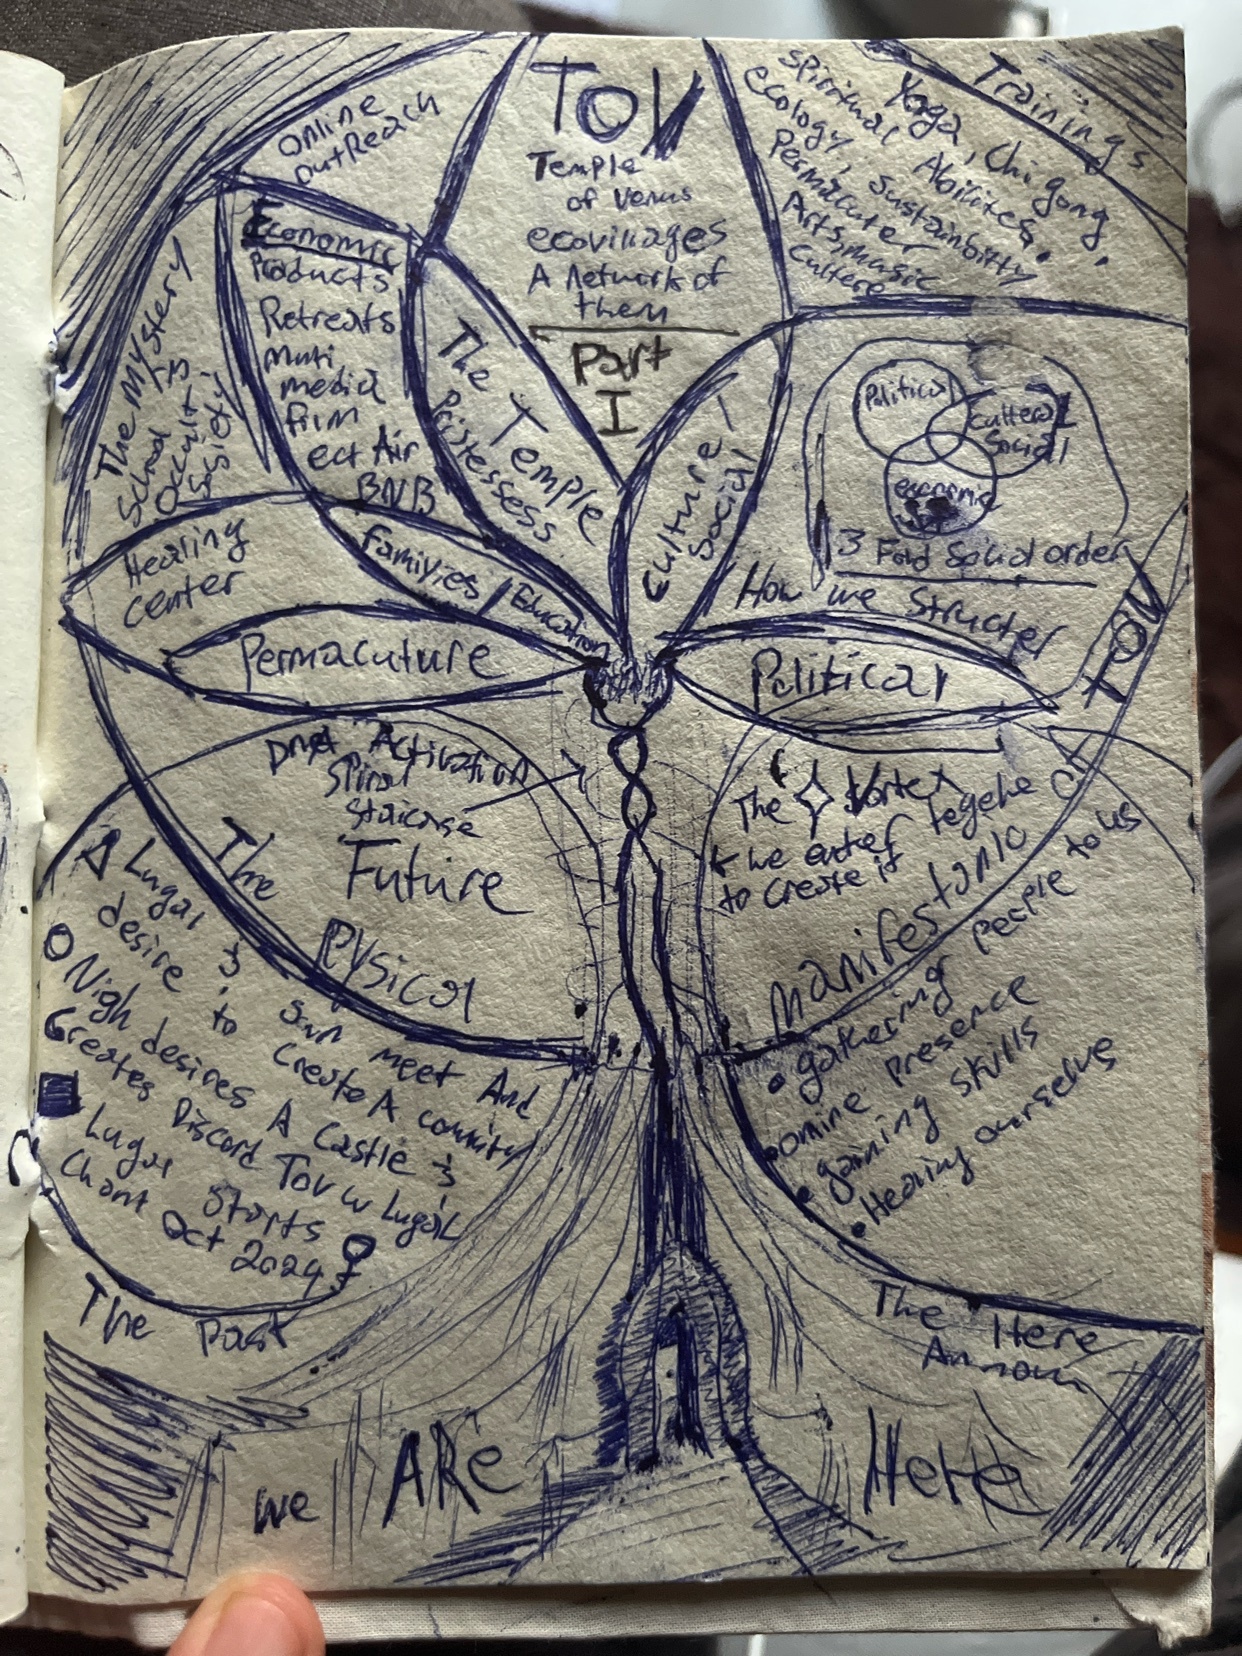 Online
OutReach
TOV
Temple
of Venus
ecovillages
A Network of
them
Part
I
Trainings
Yoga, Chi gong,
Spiritual Abilities,
Ecology, Sustainbitty
Permacuter
Arts, music
Cultere
The Mystery
School
Occult
Society
Economic
Products
Retreats
Multi
media
firm
ect Air
BNB
The Temple
Pristessess
Culture /
Social
Political
Cultera L
Social
economic
3 Fold Social order
How we Structer
Healing
center
Families / Education
Permacuture
Political
TOV
Activation
Spiral
Staircase
Future
The
PYSical
The Vortex
we enter
to create it
Manifestanio
Lugal & Sun meet And
desire to Create A commity
Nigh desires A Castle &
Creates Discord TOV w LugaL
Lugal Starts
Chant Oct 2024
The Past
gathering people to us
omine presence
gaining skills
Healing ourselves
The Here
We ARe Here